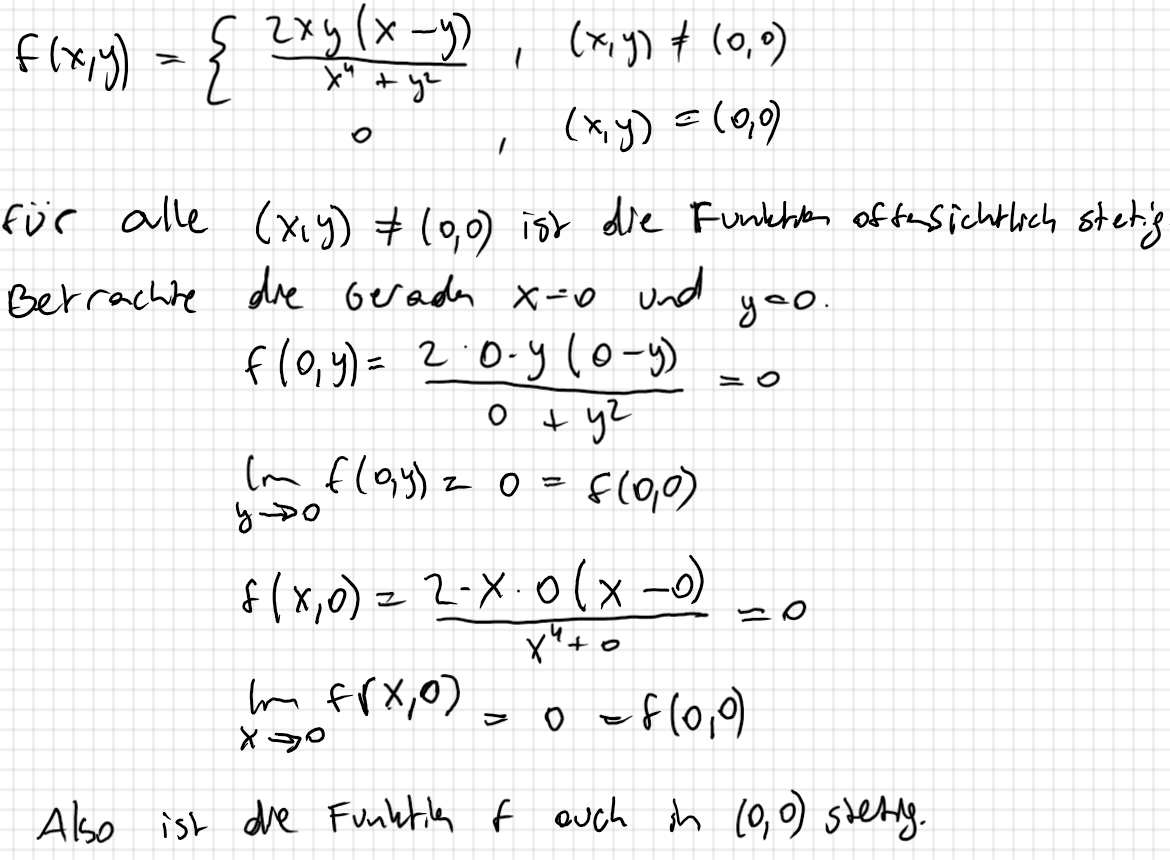 f(x,y) = { 2xy(x-y) / (x⁴ + y²) , (x,y) ≠ (0,0)
0 , (x,y) = (0,0)
für alle (x,y) ≠ (0,0) ist die Funktion offensichtlich stetig
Betrachte die Geraden x=0 und y=0.
f(0,y) = 2·0·y(0-y) / (0 + y²) = 0
lim y→0 f(0,y) = 0 = f(0,0)
f(x,0) = 2·x·0(x-0) / (x⁴+0) = 0
lim x→0 f(x,0) = 0 = f(0,0)
Also ist die Funktion f auch in (0,0) stetig.